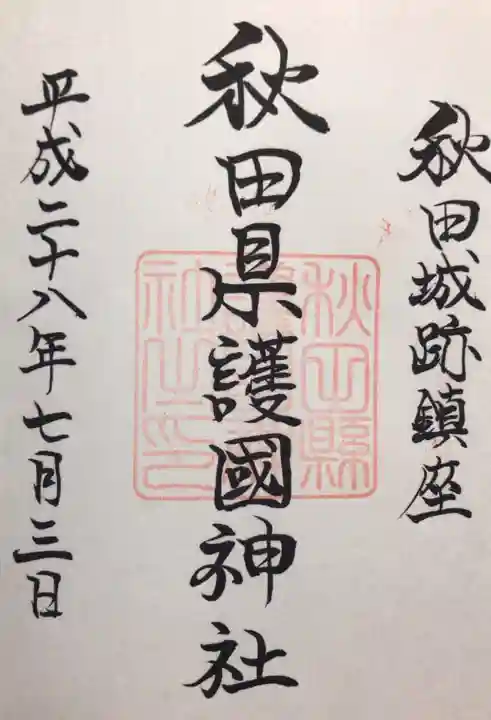 秋田城跡鎮座
秋田県護國神社
秋田縣
護國神
社之印
平成二十八年七月三日